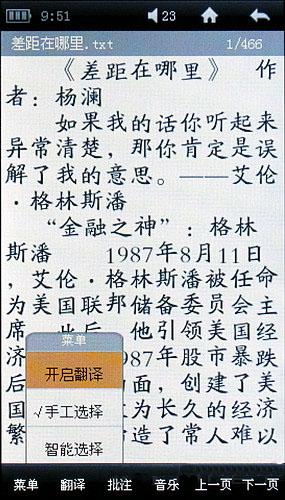 9:51 23
差距在哪里.txt 1/466
《差距在哪里》 作
者：杨澜
如果我的话你听起来
异常清楚，那你肯定是误
解了我的意思。——艾伦
·格林斯潘
“金融之神”：格林
斯潘 1987年8月11日
，艾伦·格林斯潘被任命
为美国联邦储备委员会主
席 此后 他引领美国经
济 987年股市暴跌
后 面，创建了美
国 为长久的经济
繁 造了常人难以
菜单
开启翻译
√手工选择
智能选择
菜单 翻译 批注 音乐 上一页 下一页